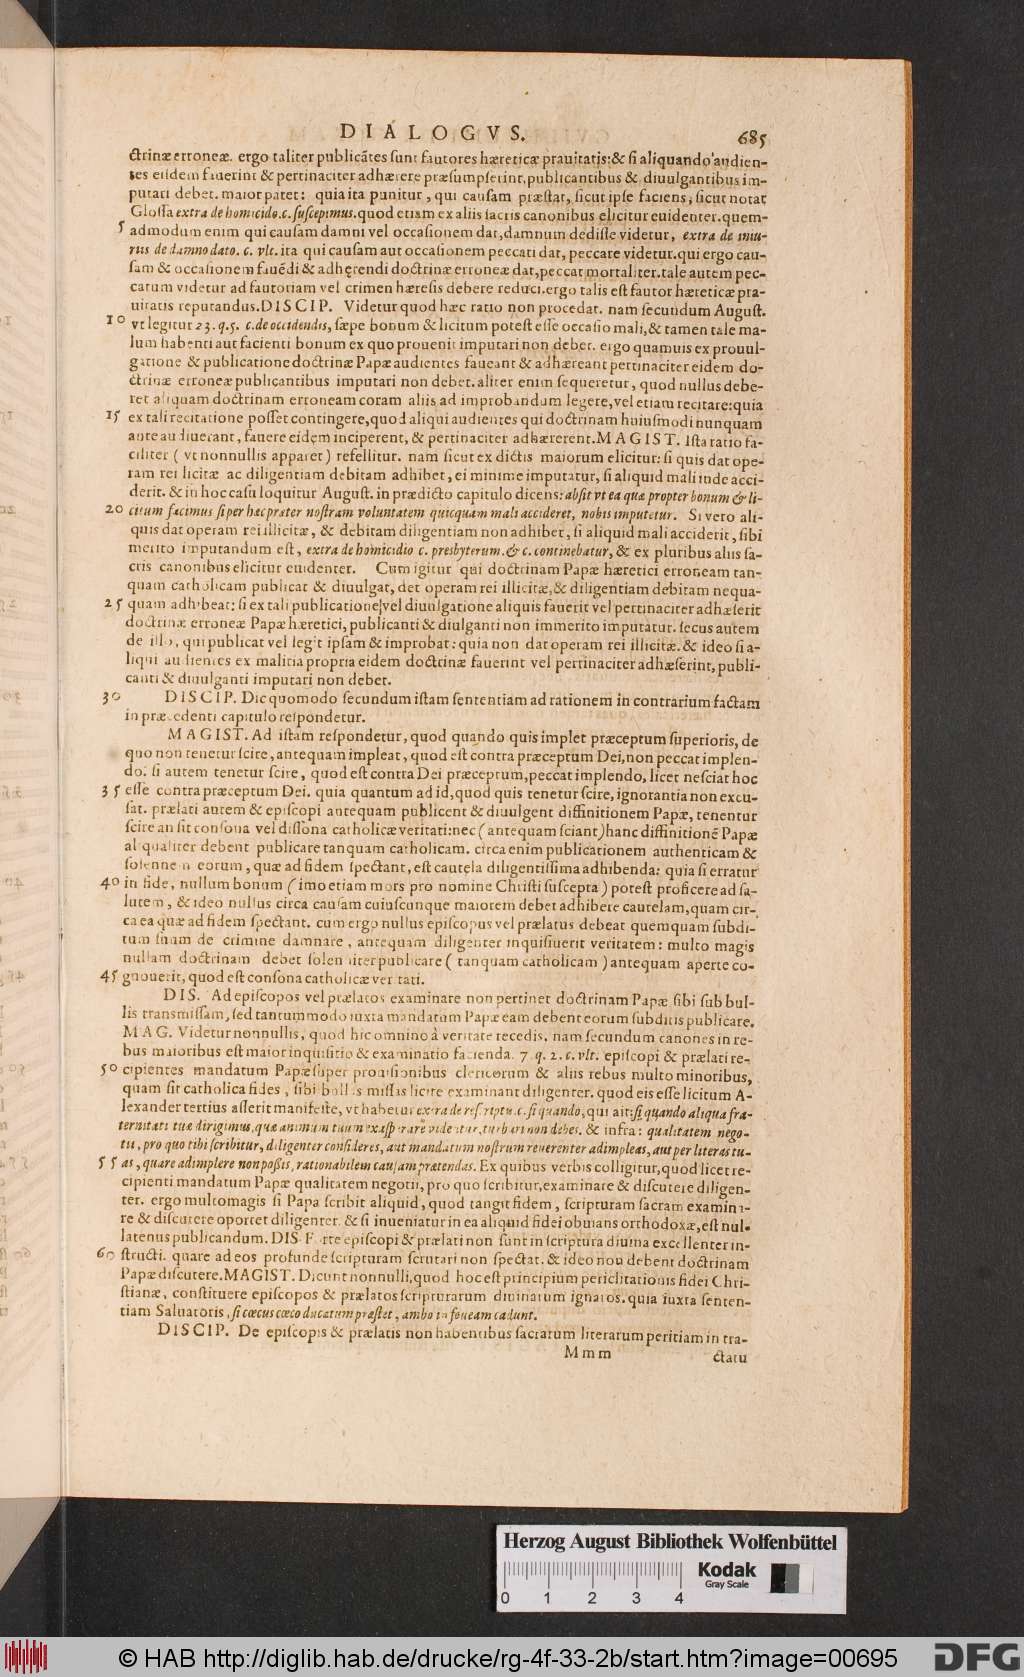 DIALOGVS. 685
ctrinæ erroneæ. ergo taliter publicātes sunt fautores hæreticæ prauitatis: & si aliquando audien-
tes eisdem fauerint & pertinaciter adhærere præsumpserint, publicantibus & diuulgantibus im-
putari debet. maior patet: quia ita punitur, qui causam præstat, sicut ipse faciens, sicut notat
Glossa extra de homicido. c. suscepimus. quod etiam ex aliis sacris canonibus elicitur euidenter. quem-
5 admodum enim qui causam damni vel occasionem dat, damnum dedisse videtur, extra de iniu-
riis de damno dato. c. vlt. ita qui causam aut occasionem peccati dat, peccare videtur. qui ergo cau-
sam & occasionem fauēdi & adhęrendi doctrinæ erroneæ dat, peccat mortaliter. tale autem pec-
catum videtur ad fautoriam vel crimen hæresis debere reduci. ergo talis est fautor hæreticæ pra-
uitatis reputandus. DISCIP. Videtur quod hæc ratio non procedat. nam secundum August.
10 vt legitur 23. q. 5. c. de occidendis, sæpe bonum & licitum potest esse occasio mali, & tamen tale ma-
lum habenti aut facienti bonum ex quo prouenit imputari non debet. ergo quamuis ex prouul-
gatione & publicatione doctrinæ Papæ audientes faueant & adhæreant pertinaciter eidem do-
ctrinæ erroneæ publicantibus imputari non debet. aliter enim sequeretur, quod nullus debe-
ret aliquam doctrinam erroneam coram aliis ad improbandum legere, vel etiam recitare: quia
15 ex tali recitatione posset contingere, quod aliqui audientes qui doctrinam huiusmodi nunquam
ante audiuerant, fauere eidem inciperent, & pertinaciter adhærerent. MAGIST. Ista ratio fa-
ciliter ( vt nonnullis apparet ) refellitur. nam sicut ex dictis maiorum elicitur: si quis dat ope-
ram rei licitæ ac diligentiam debitam adhibet, ei minime imputatur, si aliquid mali inde acci-
derit. & in hoc casu loquitur August. in prædicto capitulo dicens: absit vt ea quæ propter bonum & li-
20 citum facimus si per hæc præter nostram voluntatem quicquam mali accideret, nobis imputetur. Si vero ali-
quis dat operam rei illicitæ, & debitam diligentiam non adhibet, si aliquid mali acciderit, sibi
merito imputandum est, extra de homicidio c. presbyterum. & c. continebatur, & ex pluribus aliis sa-
cris canonibus elicitur euidenter. Cum igitur qui doctrinam Papæ hæretici erroneam tan-
quam catholicam publicat & diuulgat, det operam rei illicitæ, & diligentiam debitam nequa-
25 quam adhibeat: si ex tali publicatione vel diuulgatione aliquis fauerit vel pertinaciter adhæserit
doctrinæ erroneæ Papæ hæretici, publicanti & diulganti non immerito imputatur. secus autem
de illo, qui publicat vel legit ipsam & improbat: quia non dat operam rei illicitæ. & ideo si a-
liqui audientes ex malitia propria eidem doctrinæ fauerint vel pertinaciter adhæserint, publi-
canti & diuulganti imputari non debet.
30 DISCIP. Dic quomodo secundum istam sententiam ad rationem in contrarium factam
in præcedenti capitulo respondetur.
MAGIST. Ad istam respondetur, quod quando quis implet præceptum superioris, de
quo non tenetur scire, antequam impleat, quod est contra præceptum Dei, non peccat implen-
do: si autem tenetur scire, quod est contra Dei præceptum, peccat implendo, licet nesciat hoc
35 esse contra præceptum Dei. quia quantum ad id, quod quis tenetur scire, ignorantia non excu-
sat. prælati autem & episcopi antequam publicent & diuulgent diffinitionem Papæ, tenentur
scire an sit consona vel dissona catholicæ veritati: nec ( antequam sciant ) hanc diffinitionē Papæ
aliqualiter debent publicare tanquam catholicam. circa enim publicationem authenticam &
solennem eorum, quæ ad fidem spectant, est cautela diligentissima adhibenda: quia si erratur
40 in fide, nullum bonum ( imo etiam mors pro nomine Christi suscepta ) potest proficere ad sa-
lutem, & ideo nullus circa causam cuiuscunque maiorem debet adhibere cautelam, quam cir-
ca ea quæ ad fidem spectant. cum ergo nullus episcopus vel prælatus debeat quemquam subdi-
tum suum de crimine damnare, antequam diligenter inquisiuerit veritatem: multo magis
nullam doctrinam debet solenniter publicare ( tanquam catholicam ) antequam aperte co-
45 gnouerit, quod est consona catholicæ veritati.
DIS. Ad episcopos vel prælatos examinare non pertinet doctrinam Papæ sibi sub bul-
lis transmissam, sed tantummodo iuxta mandatum Papæ eam debent eorum subditis publicare.
MAG. Videtur nonnullis, quod hic omnino à veritate recedis. nam secundum canones in re-
bus maioribus est maior inquisitio & examinatio facienda. 7. q. 2. c. vlt. episcopi & prælati re-
50 cipientes mandatum Papæ super prouisionibus clericorum & aliis rebus multo minoribus,
quam sit catholica fides, sibi bullis missis licite examinant diligenter. quod eis esse licitum A-
lexander tertius asserit manifeste, vt habetur extra de rescriptis. c. si quando, qui ait: si quando aliqua fra-
ternitati tuæ dirigimus, quæ animum tuum exasperare videantur, turbari non debes. & infra: qualitatem nego-
tii, pro quo tibi scribitur, diligenter consideres, aut mandatum nostrum reuerenter adimpleas, aut per literas tu-
55 as, quare adimplere non possis, rationabilem causam prætendas. Ex quibus verbis colligitur, quod licet re-
cipienti mandatum Papæ qualitatem negotii, pro quo scribitur, examinare & discutere diligen-
ter. ergo multomagis si Papa scribit aliquid, quod tangit fidem, scripturam sacram examina-
re & discutere oportet diligenter. & si inueniatur in ea aliquid fidei obuians orthodoxæ, est nul-
latenus publicandum. DIS. Forte episcopi & prælati non sunt in scriptura diuina excellenter in-
60 structi. quare ad eos profunde scripturam scrutari non spectat. & ideo non debent doctrinam
Papæ discutere. MAGIST. Dicunt nonnulli, quod hoc est principium periclitationis fidei Chri-
stianæ, constituere episcopos & prælatos scripturarum diuinarum ignaros. quia iuxta senten-
tiam Saluatoris, si cæcus cæco ducatum præstet, ambo in foueam cadunt.
DISCIP. De episcopis & prælatis non habentibus sacrarum literarum peritiam in tra-
Mmm ctatu
Herzog August Bibliothek Wolfenbüttel
Kodak
Gray Scale
0 1 2 3 4
© HAB http://diglib.hab.de/drucke/rg-4f-33-2b/start.htm?image=00695
DFG